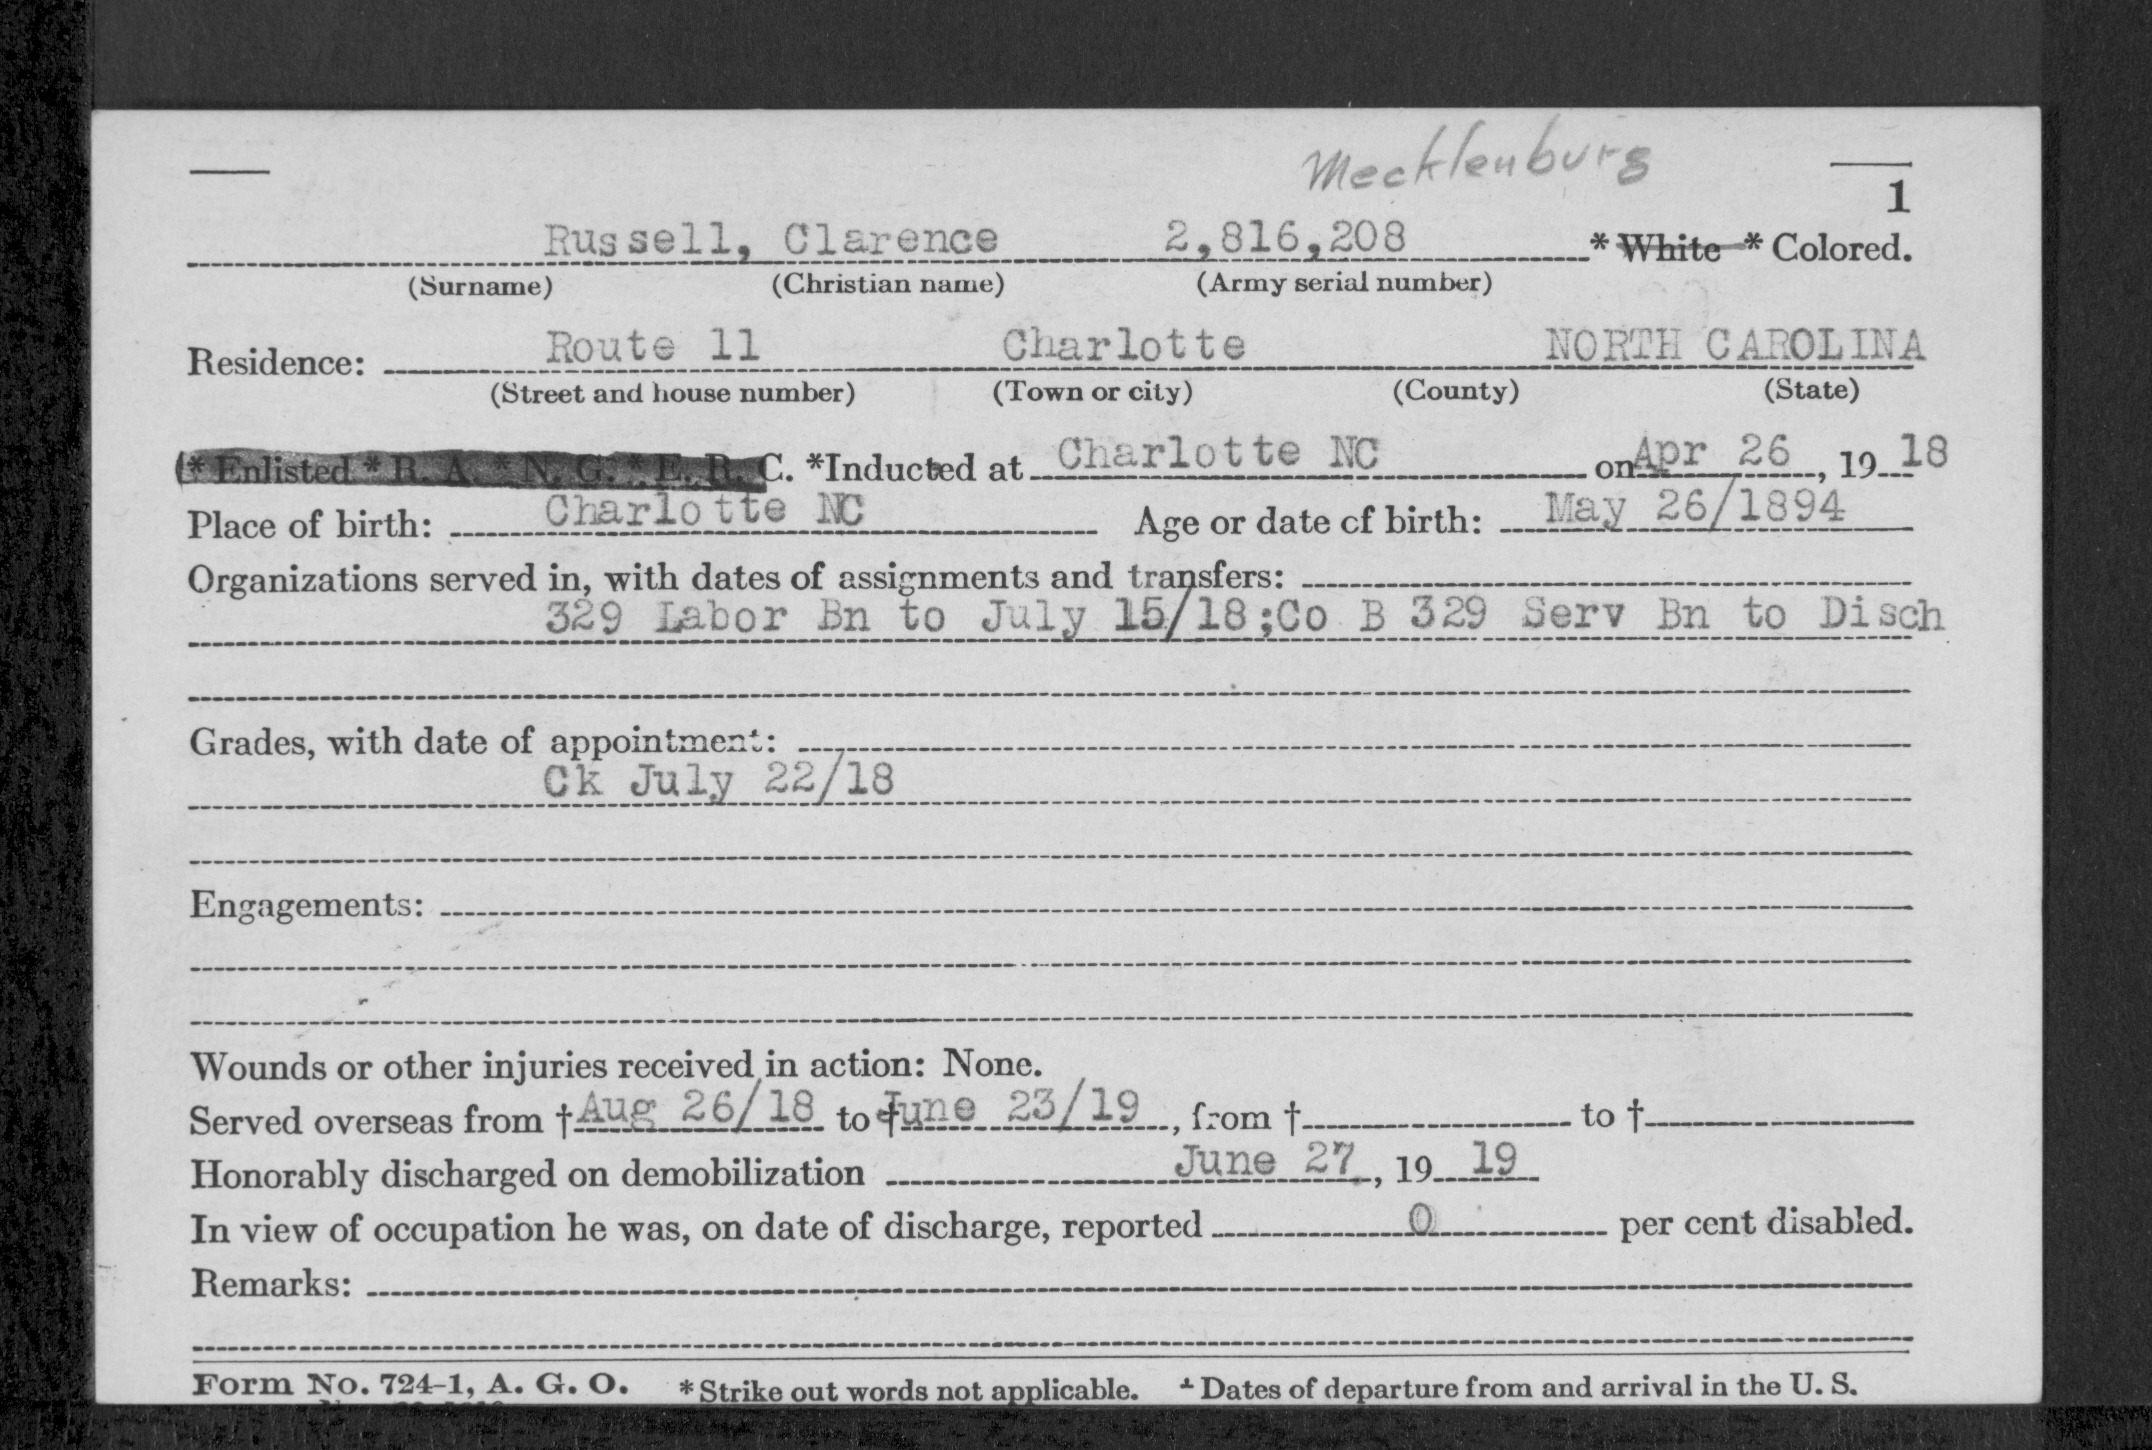 Mecklenburg
1
Russell, Clarence 2,816,208 * White * Colored.
(Surname) (Christian name) (Army serial number)
Residence: Route 11 Charlotte NORTH CAROLINA
(Street and house number) (Town or city) (County) (State)
(* Enlisted * R. A. * N. G. * E. R. C. *Inducted at Charlotte NC on Apr 26, 19 18
Place of birth: Charlotte NC Age or date of birth: May 26/1894
Organizations served in, with dates of assignments and transfers:
329 Labor Bn to July 15/18;Co B 329 Serv Bn to Disch
Grades, with date of appointment:
Ck July 22/18
Engagements:
Wounds or other injuries received in action: None.
Served overseas from † Aug 26/18 to † June 23/19, from † to †
Honorably discharged on demobilization June 27, 19 19
In view of occupation he was, on date of discharge, reported 0 per cent disabled.
Remarks:
Form No. 724-1, A. G. O. * Strike out words not applicable. † Dates of departure from and arrival in the U. S.